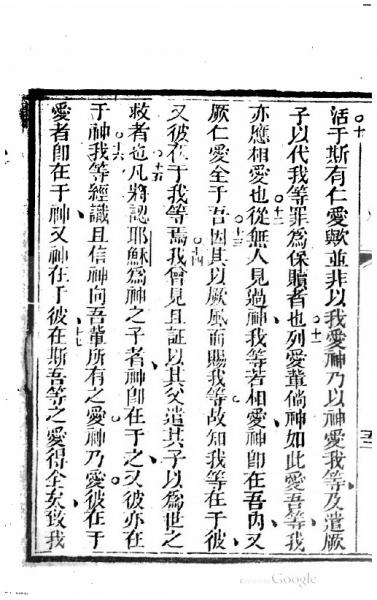 活于斯有仁愛歟並非以我愛神乃以神愛我等及遣厥
子以代我等罪為保贖者也列愛輩倘神如此愛吾等我
亦應相愛也從無人見過神我等若相愛神即在吾內又
厥仁愛全于吾因其以厥風而賜我等故知我等在于彼
又彼在于我等焉我曾見且証以其父遣其子以為世之
救者也凡將認耶穌為神之子者神即在于之又彼亦在
于神我等經識且信神向吾輩所有之愛神乃愛彼在于
愛者即在于神又神在于彼在斯吾等之愛得全矣致我
十
十一
十二
十三
十四
十五
十六
十七
Google